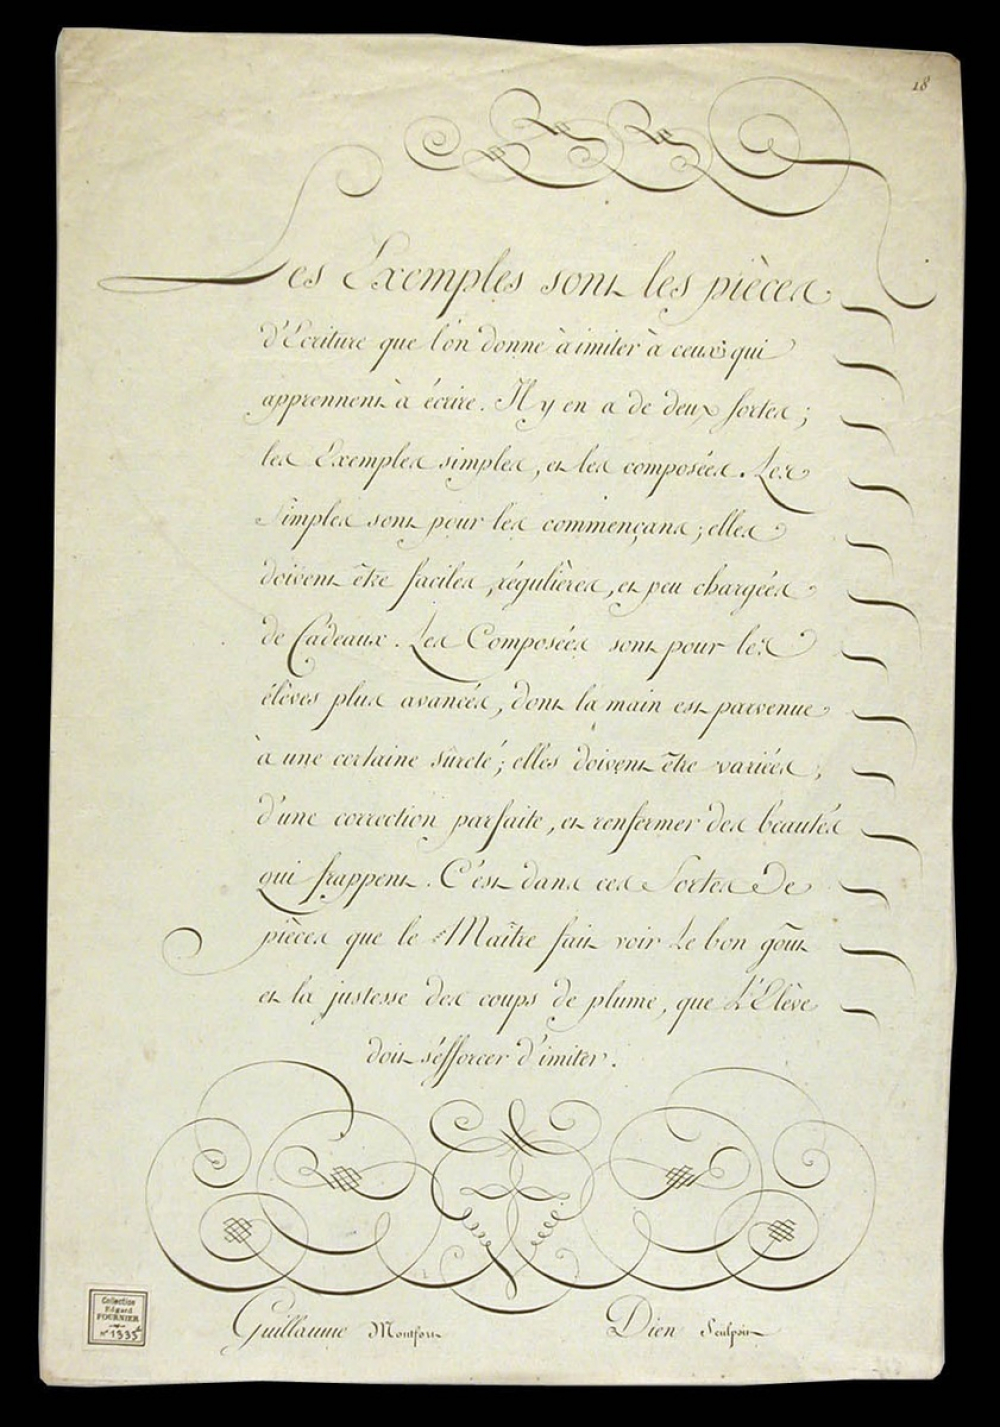 18
Les Exemples sont les pièces
d'Ecriture que l'on donne à imiter à ceux qui
apprennent à écrire. Il y en a de deux sortes ;
les Exemples simples, et les composées. Les
Simples sont pour les commençans ; elles
doivent être faciles, régulières, et peu chargées
de Cadeaux. Les Composées sont pour les
élèves plus avancés, dont la main est parvenue
à une certaine sûreté ; elles doivent être variées,
d'une correction parfaite, et renfermer des beautés
qui frappent. C'est dans ces Sortes De
pièces que le Maître fait voir Le bon goût
et la justesse des coups de plume, que L'Elève
doit s'éfforcer d'imiter.
Guillaume Montfort
Dien Sculpsit
Collection
Edgard
FOURNIER
n° 1335